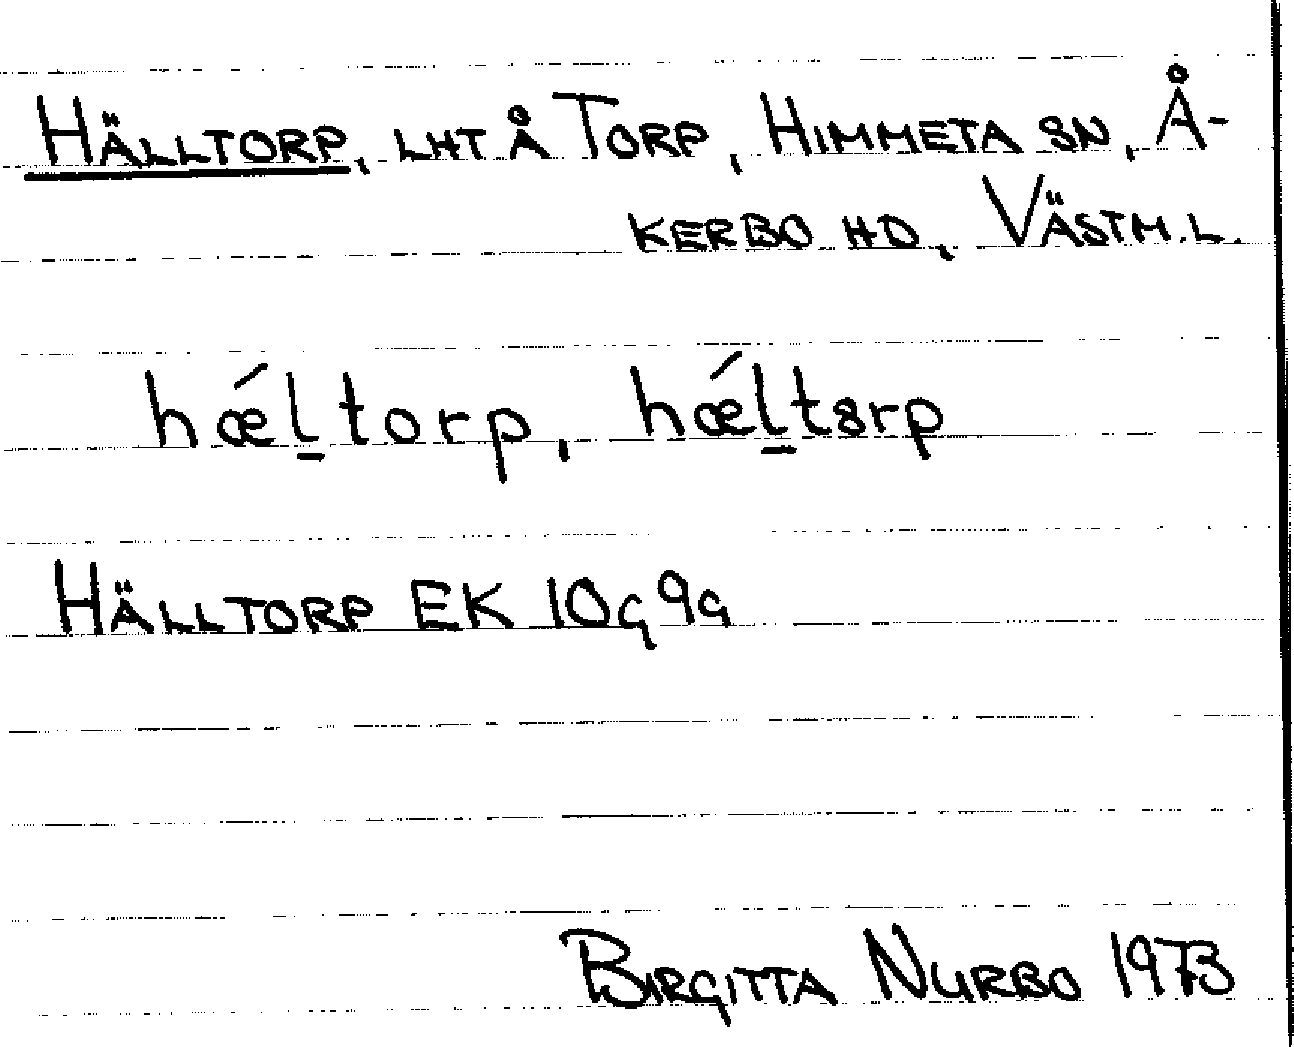 HÄLLTORP, LHT Å TORP, HIMMETA SN, Å-
KERBO HD, VÄSTM.L.
hǽl̲torp, hǽl̲tɞrp
HÄLLTORP EK 10G 9G
BIRGITTA NURBO 1973